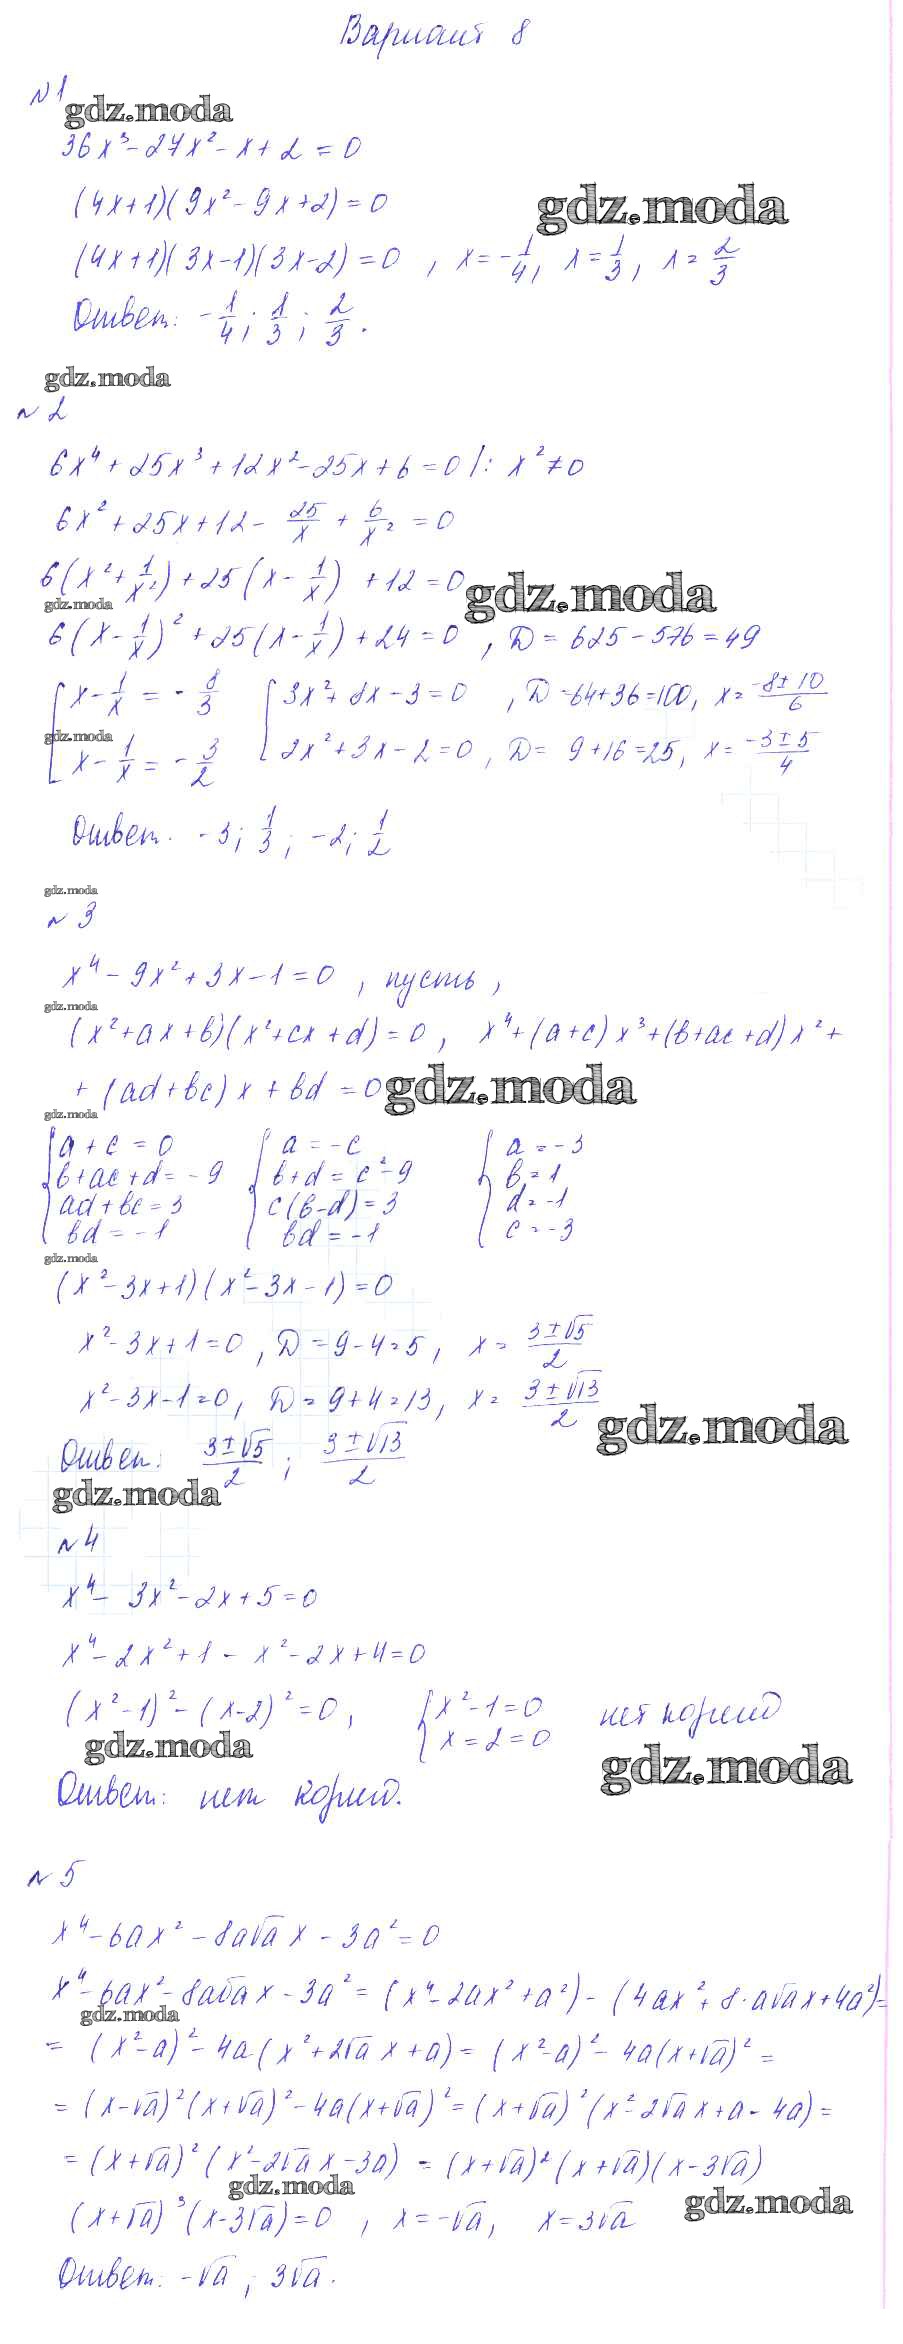 Вариант 8
№1
gdz.moda
36x³ - 27x² - x + 2 = 0
(4x+1)(9x² - 9x+2) = 0
gdz.moda
(4x+1)(3x-1)(3x-2) = 0 , x = -1/4, x = 1/3, x = 2/3
Ответ: -1/4; 1/3; 2/3.
gdz.moda
№2
6x⁴ + 25x³ + 12x² - 25x + 6 = 0 |: x² ≠ 0
6x² + 25x + 12 - 25/x + 6/x² = 0
6(x² + 1/x²) + 25(x - 1/x) + 12 = 0
gdz.moda
gdz.moda
6(x - 1/x)² + 25(x - 1/x) + 24 = 0 , D = 625 - 576 = 49
[x - 1/x = -8/3 [3x² + 8x - 3 = 0 , D = 64+36=100, x = (-8 ± 10)/6
gdz.moda
[x - 1/x = -3/2 [2x² + 3x - 2 = 0 , D = 9+16=25, x = (-3 ± 5)/4
Ответ. -3; 1/3; -2; 1/2
gdz.moda
№3
x⁴ - 9x² + 3x - 1 = 0 , пусть,
gdz.moda
(x² + ax + b)(x² + cx + d) = 0, x⁴ + (a+c)x³ + (b+ac+d)x² +
+ (ad+bc)x + bd = 0
gdz.moda
gdz.moda
{a + c = 0 {a = -c {a = -3
b + ac + d = -9 b + d = c² - 9 b = 1
ad + bc = 3 c(b-d) = 3 d = -1
bd = -1 bd = -1 c = -3
gdz.moda
(x² - 3x + 1)(x² - 3x - 1) = 0
x² - 3x + 1 = 0 , D = 9 - 4 = 5, x = (3 ± √5)/2
x² - 3x - 1 = 0, D = 9 + 4 = 13, x = (3 ± √13)/2
gdz.moda
Ответ: (3 ± √5)/2 ; (3 ± √13)/2
gdz.moda
№4
x⁴ - 3x² - 2x + 5 = 0
x⁴ - 2x² + 1 - x² - 2x + 4 = 0
(x² - 1)² - (x-2)² = 0, {x² - 1 = 0 нет корней
x = 2 = 0
gdz.moda
gdz.moda
Ответ: нет корней.
№5
x⁴ - 6ax² - 8a√a x - 3a² = 0
x⁴ - 6ax² - 8a√a x - 3a² = (x⁴ - 2ax² + a²) - (4ax² + 8·a√a x + 4a²) =
gdz.moda
= (x² - a)² - 4a(x² + 2√a x + a) = (x² - a)² - 4a(x + √a)² =
= (x - √a)²(x + √a)² - 4a(x + √a)² = (x + √a)²(x² - 2√a x + a - 4a) =
= (x + √a)²(x² - 2√a x - 3a) = (x + √a)²(x + √a)(x - 3√a)
gdz.moda
gdz.moda
(x + √a)³(x - 3√a) = 0 , x = -√a, x = 3√a
Ответ: -√a ; 3√a.